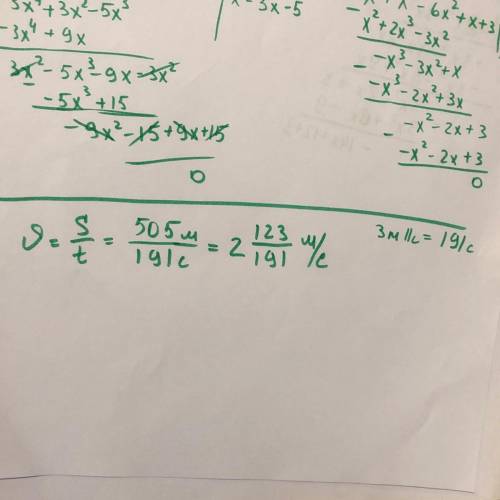 3x⁴+3x²-5x³
-3x⁴+9x
3x²-5x³-9x-3x²
-5x³+15
-9x²-15+9x+15
0
x-3x-5
-6x²+x+3
x²+2x³-3x²
-x³-3x²+x
-x³-2x²+3x
-x²-2x+3
-x²-2x+3
0
𝜗=S/t=505м/191с=2 123/191 м/с
3м11с=191с